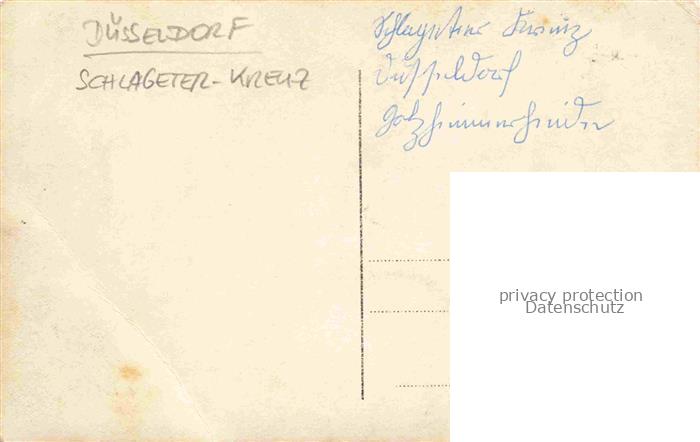 DÜSSELDORF
SCHLAGETER-KREUZ
Schlageter Kreuz
Düsseldorf
privacy protection
Datenschutz